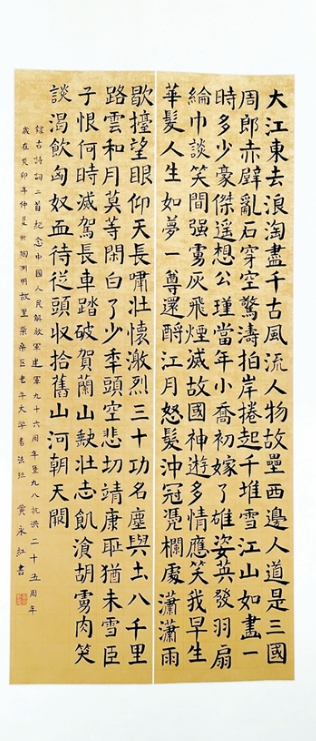 大江東去浪淘盡千古風流人物故壘西邊人道是三國
周郎赤壁亂石穿空驚濤拍岸捲起千堆雪江山如畫一
時多少豪傑遥想公瑾當年小喬初嫁了雄姿英發羽扇
綸巾談笑間强虜灰飛煙滅故國神遊多情應笑我早生
華髮人生如夢一尊還酹江月怒髮沖冠憑欄處瀟瀟雨
歇擡望眼仰天長嘯壯懷激烈三十功名塵與土八千里
路雲和月莫等閑白了少年頭空悲切靖康恥猶未雪臣
子恨何時滅駕長車踏破賀蘭山缺壯志飢湌胡虜肉笑
談渴飲匈奴血待從頭收拾舊山河朝天闕
錄古詩詞二首紀念中國人民解放軍建軍九十六周年暨九八抗洪二十五周年
歲在癸卯年仲夏於陶淵明故里柴桑區老年大学書法班 黄永紅書